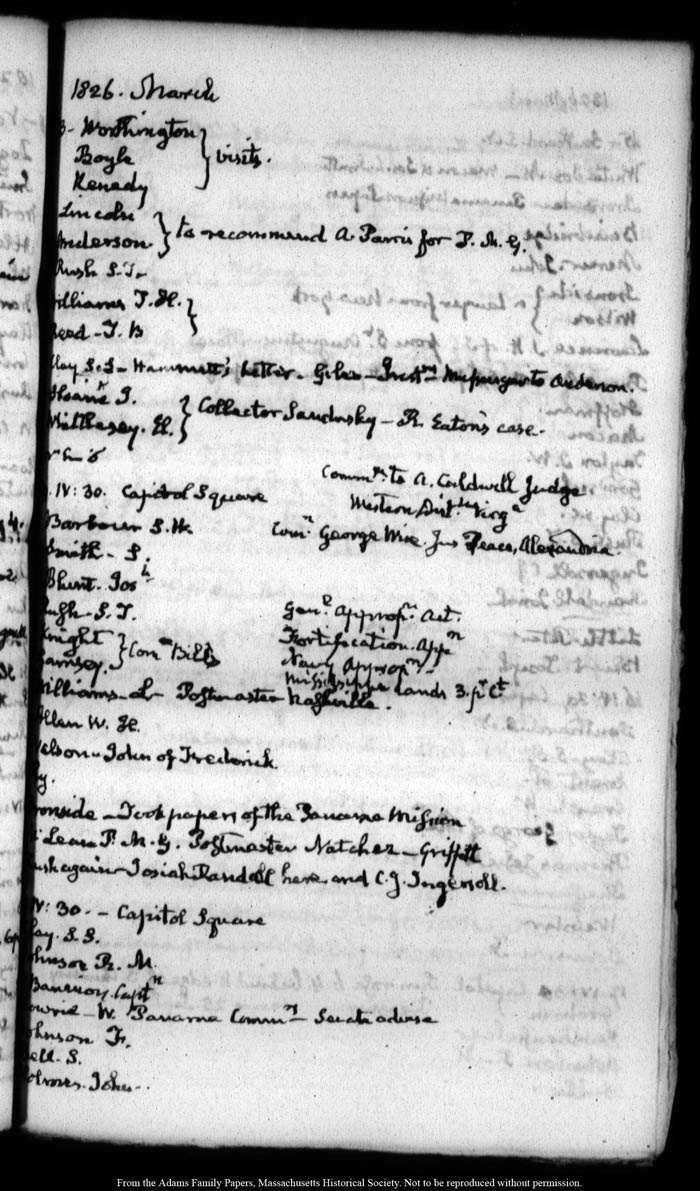 1826. March
Worthington
Boyle
Kenedy
} visits.
Lincoln
Anderson
} to recommend A. Parris for P. M. G.
Rush S. T.
illiams T. H.
Reed - T. B
Clay S. S - Hammett's Letter. Giles - Messenger to Anderson.
Sloane J.
Whittlesey. El.
} Collector Sandusky - R. Eaton's case.
IV: 30. Capitol Square
Comm.n to A. Caldwell Judge
Western Dist.
Com.n George Wise. Jus Peace, Alexandria.
Barbour S. W.
Smith - S.
Blunt. Jos.h
Rush - S. T.
Knight
Ramsay
} Com.ee Bills
Gen.l Approp.n Act.
Fortification App.n
Navy Approp.n
Mississippi Lands 3. p.r C.t
illiams - Postmaster Nashville.
Allen W. H.
elson - John of Frederick
ronside - Took papers of the Panama Mission
Lean P. M. G. Postmaster Natchez - Griffith
ush again - Josiah Randall here, and C. J. Ingersoll.
IV: 30. - Capitol Square
lay. S. S.
ohnson R. M.
owrie - W. Panama Comm.n - Senate advise
ohnson F.
ell. S.
olmes. John -
From the Adams Family Papers, Massachusetts Historical Society. Not to be reproduced without permission.